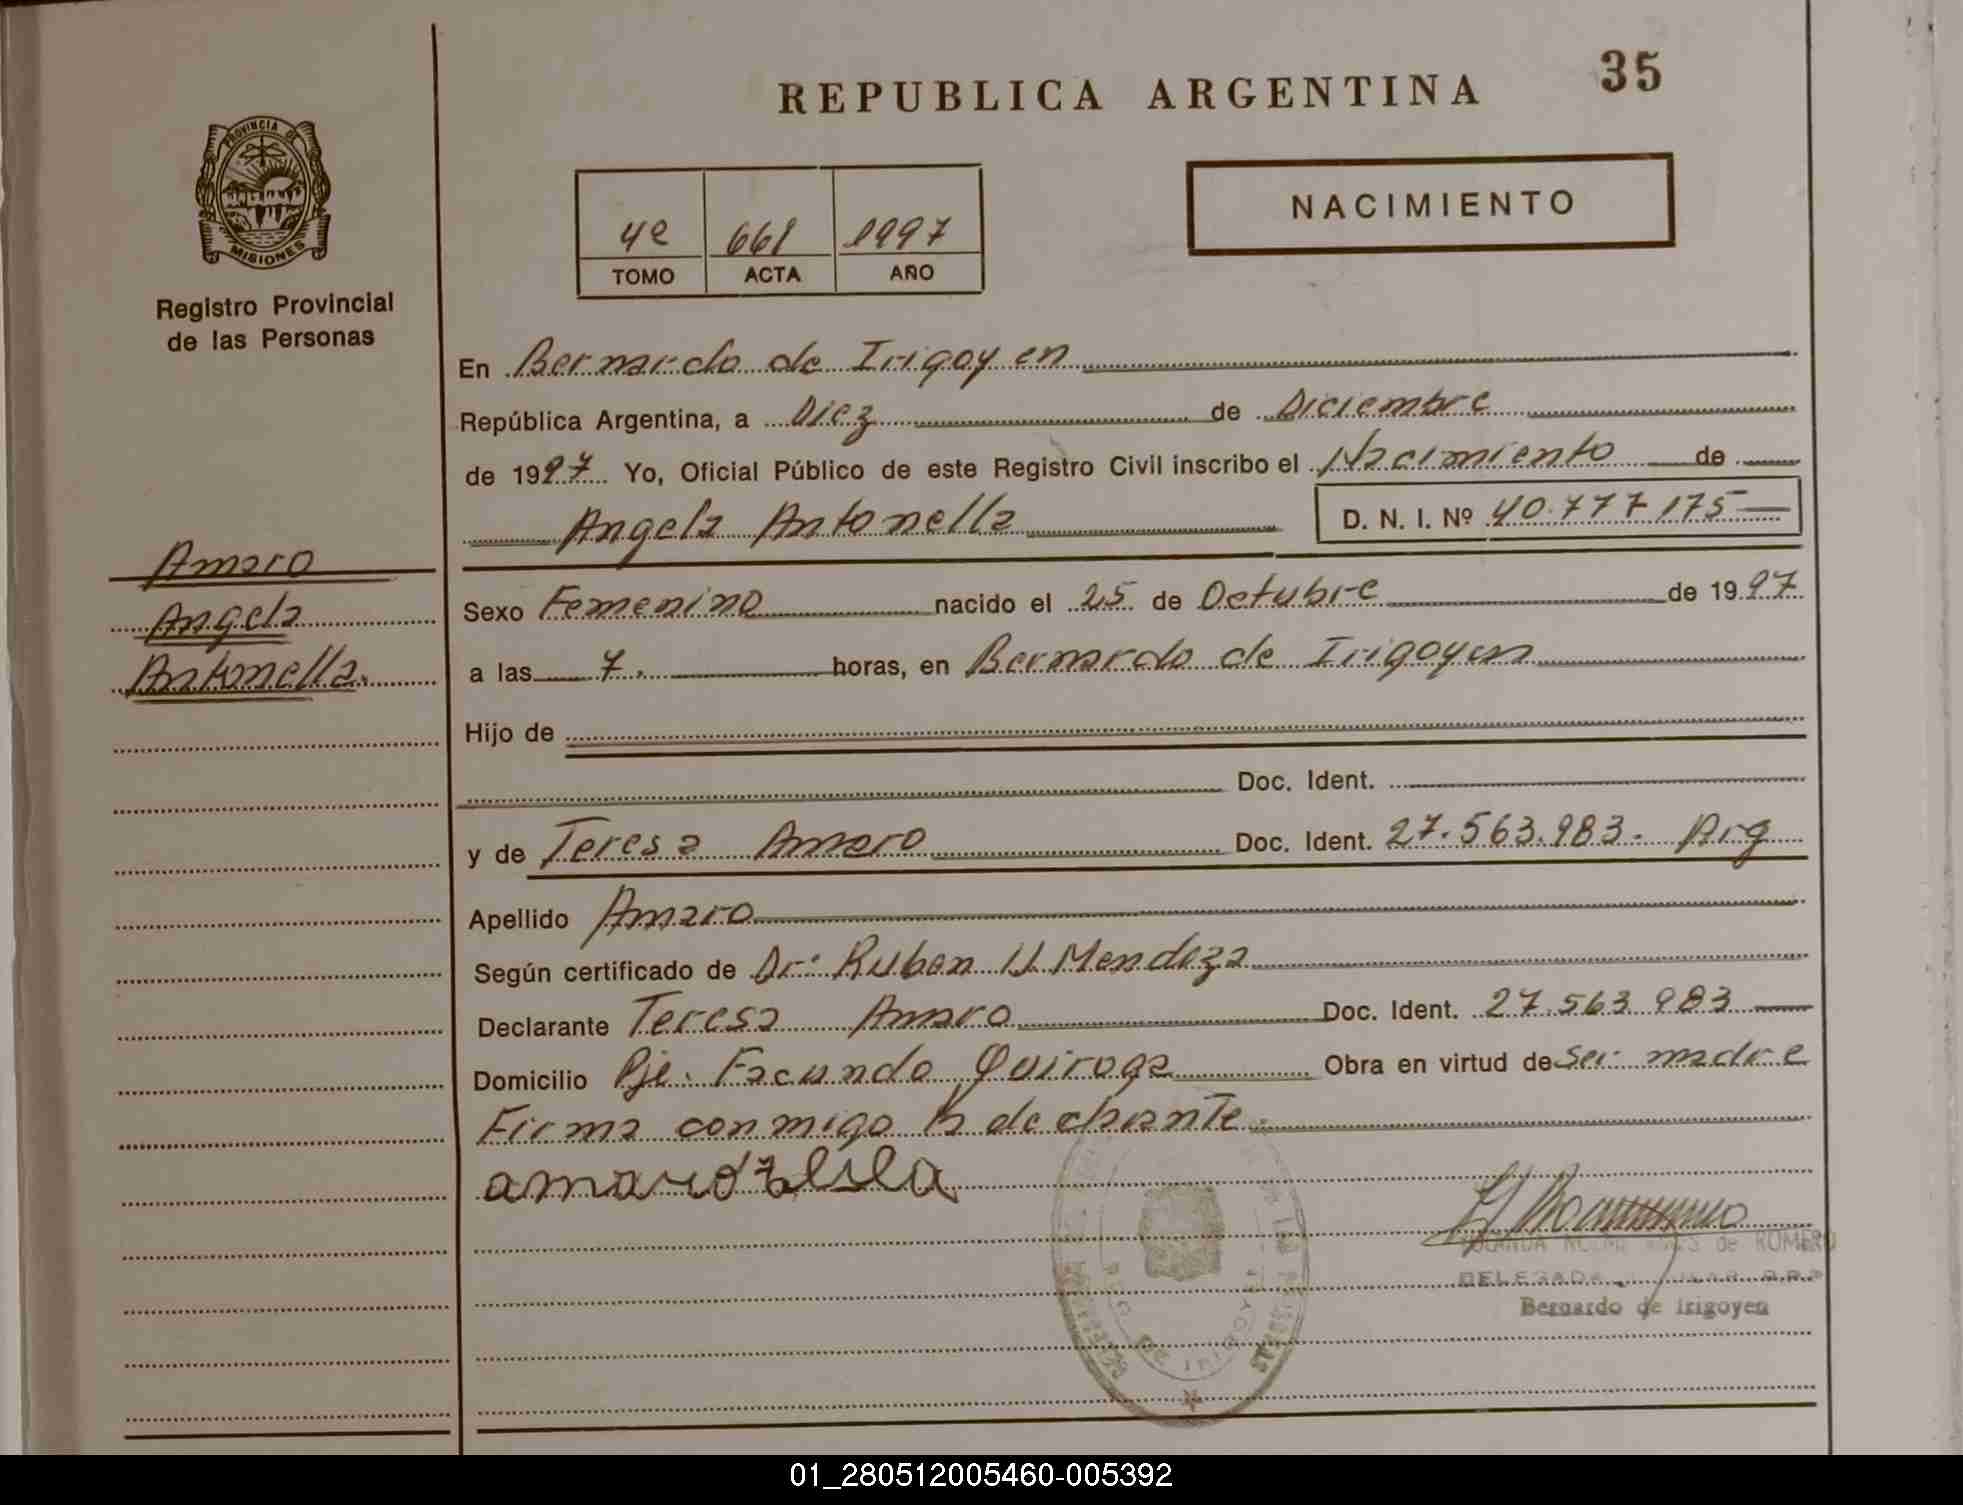 35
REPUBLICA ARGENTINA
PROVINCIA DE
MISIONES
Registro Provincial
de las Personas
4º 661 1997
TOMO ACTA AÑO
NACIMIENTO
En Bernardo de Irigoyen
República Argentina, a Diez de Diciembre
de 1997 Yo, Oficial Público de este Registro Civil inscribo el Nacimiento de
Angela Antonella D. N. I. Nº 40.777.175
Amaro
Angela
Antonella.
Sexo Femenino nacido el 25 de Octubre de 1997
a las 7. horas, en Bernardo de Irigoyen
Hijo de
Doc. Ident.
y de Teresa Amaro Doc. Ident. 27.563.983. Arg
Apellido Amaro
Según certificado de Dr: Ruben Mendoza
Declarante Teresa Amaro Doc. Ident. 27.563.983
Domicilio Pje. Facundo Quiroga Obra en virtud de ser madre
Firma conmigo la declarante.
amaro
de ROMERO
DELEGADA
Bernardo de Irigoyen
01_280512005460-005392